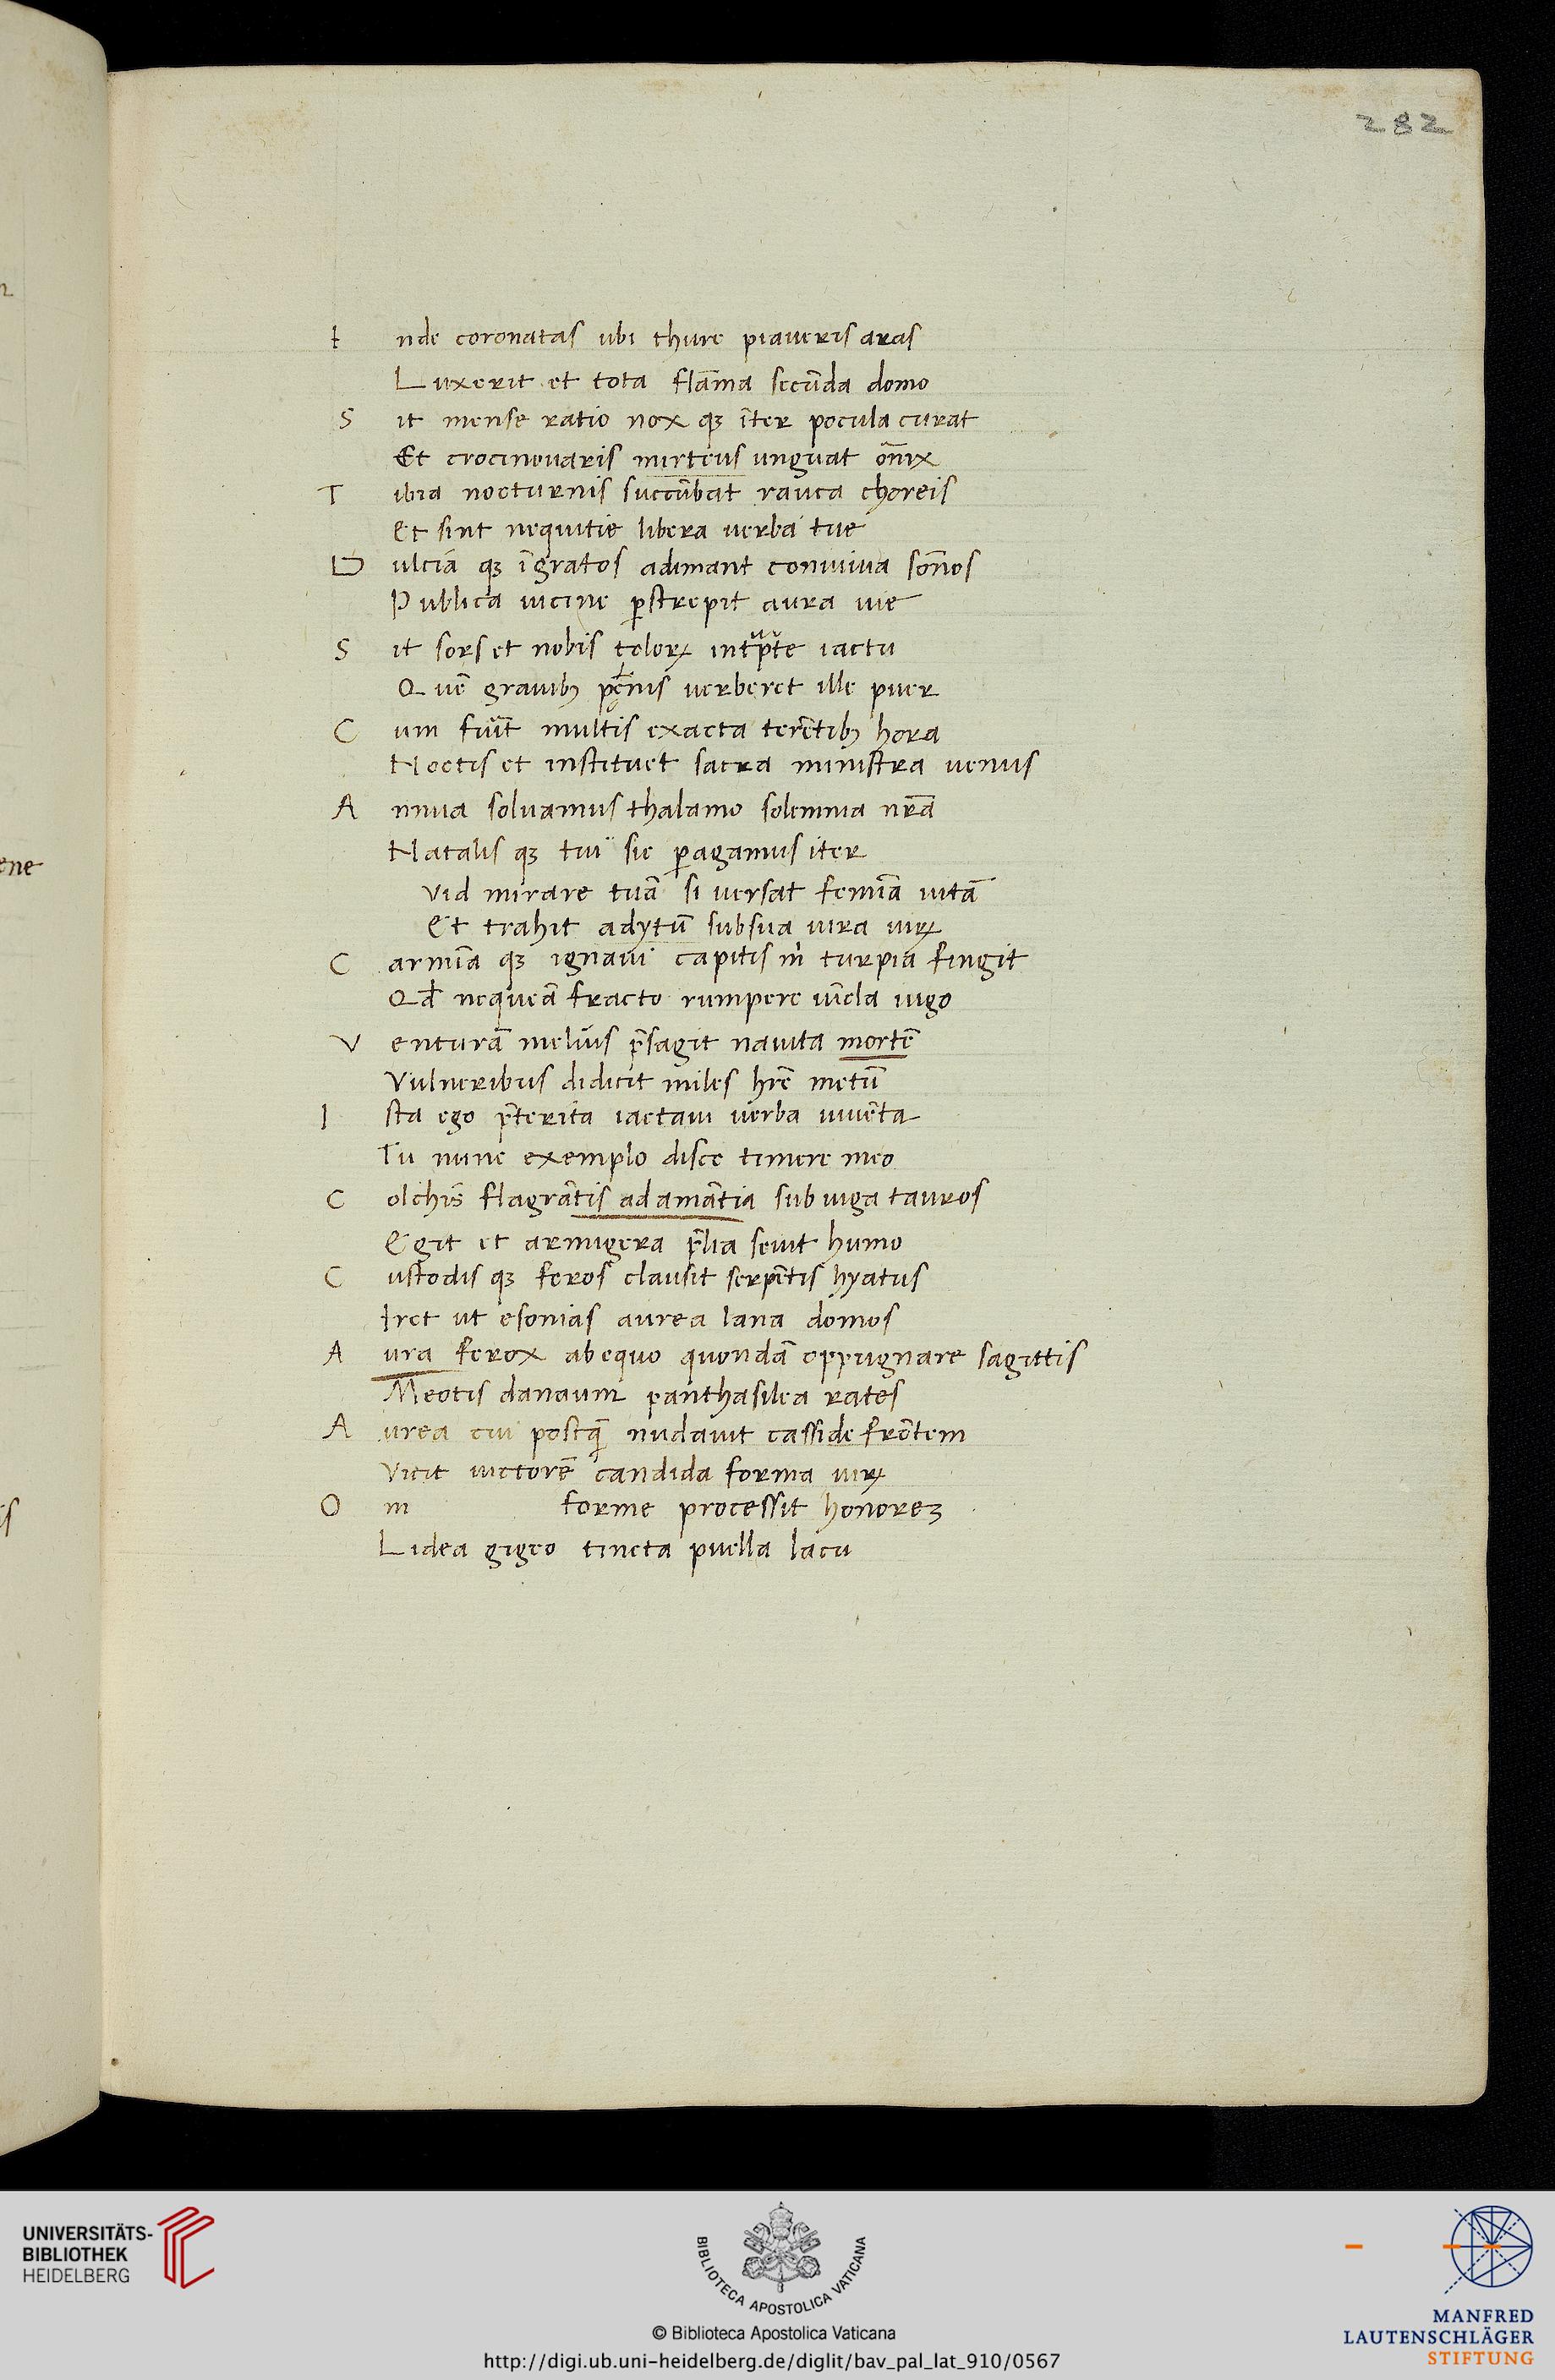 282
I nde coronatas ubi thure piaueris aras
Luxerit et tota flāma secūda domo
S it mense ratio nox qꝫ īter pocula curat
Et crocinouaris mirteus unguat ōnix
T ibia nocturnis succūbat rauca choreis
Et sint nequitie libera uerba tue
D ulcia qꝫ īgratos adimant conuiuia sōnos
Publica uicine ꝑstrepit aura uie
S it sors et nobis tolorꝝ iactu
Quē grauibꝫ uerberet ille puer
C um fuīt multis exacta terētibꝫ hora
Noctis et instituet sacra ministra uenus
A nnua soluamus thalamo solemnia nr̄a
Natalis qꝫ tui sic ꝑagamus iter
vid mirare tuā si uersat femīa uitā
Et trahit adytū sub sua iura uirꝝ
C armīa qꝫ ignaui capitis m̍ turpia fingit
Qd̄ nequeā fracto rumpere uīcla iugo
V enturā melius p̄sagit nauita mortē
Vulneribus didicit miles hr̄e metū
I sta ego p̄terita iactaui uerba iuuēta
Tu nunc exemplo disce timere meo
C olchis flagrātis adamātia sub iuga tauros
Egit et armigera p̄lia seuit humo
C ustodis qꝫ feros clausit serpētis hyatus
Iret ut esonias aurea lana domos
A ura ferox ab equo quondā oppugnare sagittis
Meotis danaum panthasilea rates
A urea cui postq̄ nudauit casside frōtem
Vicit uictorē candida forma uirꝝ
O m forme processit honorez
Lidea gigeo tincta puella lacu
ene
is
UNIVERSITÄTS-
BIBLIOTHEK
HEIDELBERG
BIBLIOTECA APOSTOLICA VATICANA
© Biblioteca Apostolica Vaticana
http://digi.ub.uni-heidelberg.de/diglit/bav_pal_lat_910/0567
MANFRED
LAUTENSCHLÄGER
STIFTUNG